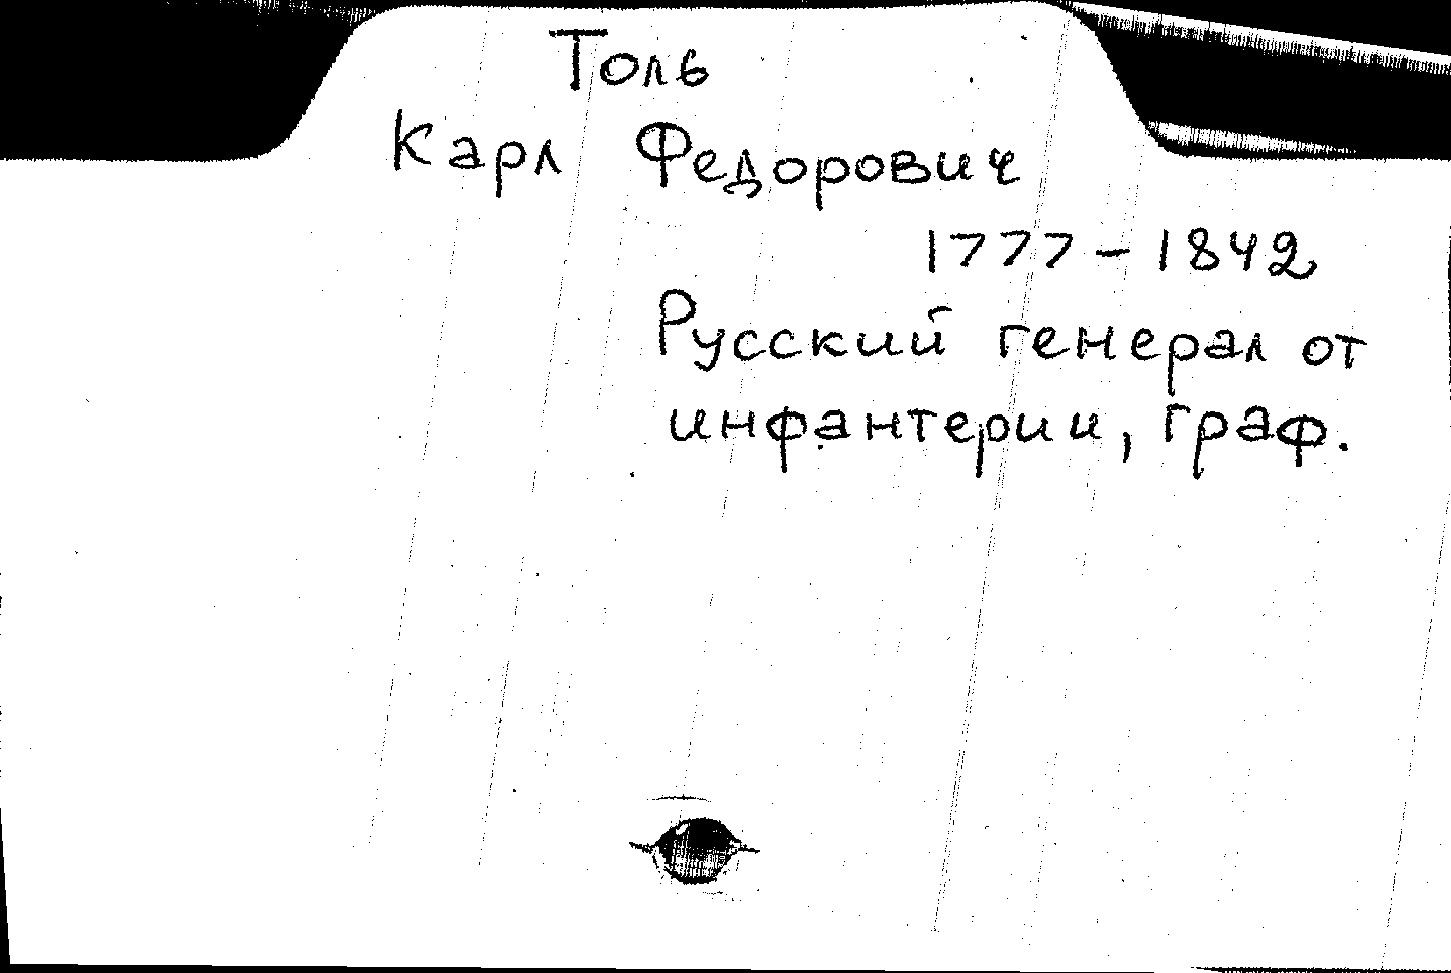 Толь
Карл Федорович
1777-1842
Русский генерал от
инфантерии, граф.